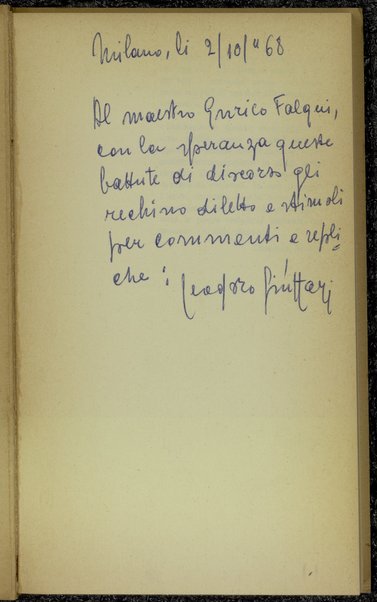 Milano, li 2/10/"68
Al maestro Enrico Falqui,
con la speranza queste
battute di discorso gli
rechino diletto e stimoli
per commenti e repli=
che : Teodoro Giùttari